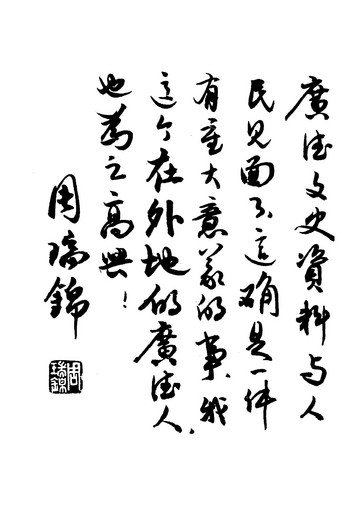 廣德文史資料与人
民见面了,這确是一件
有重大意義的事,我
這个在外地的廣德人,
也為之高興!
周瑞錦
周瑞錦